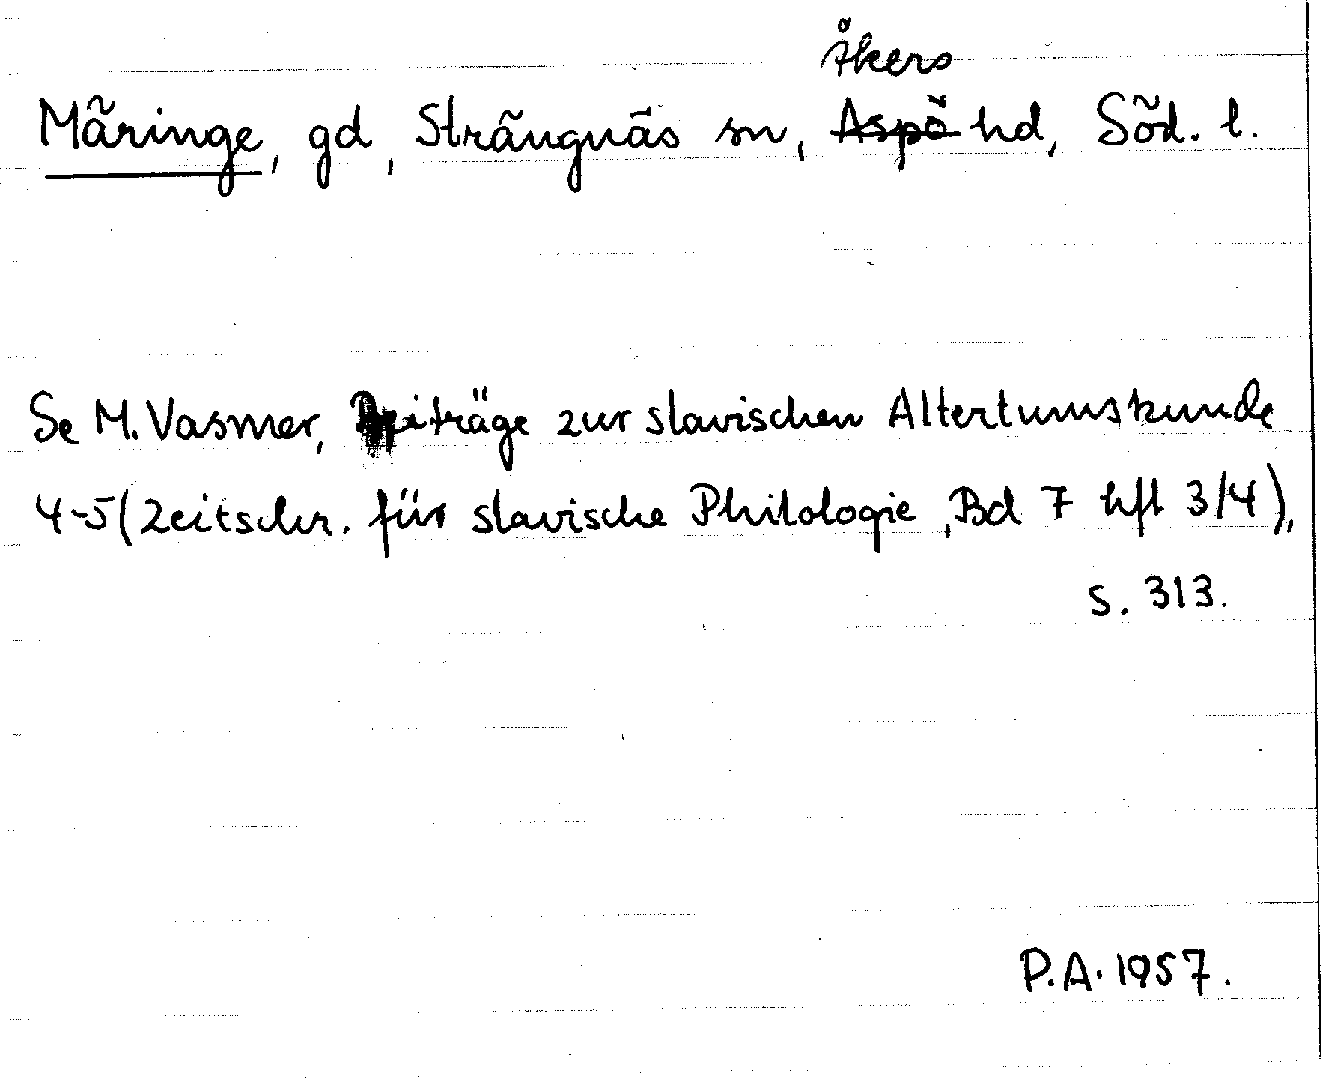 Åkers
Märinge, gd, Strängnäs sn, Aspö hd, Söd. l.
Se M. Vasmer, Beiträge zur slavischen Altertumskunde
4-5 (Zeitschr. für slavische Philologie, Bd 7 hft 3/4),
s. 313.
P.A. 1957.